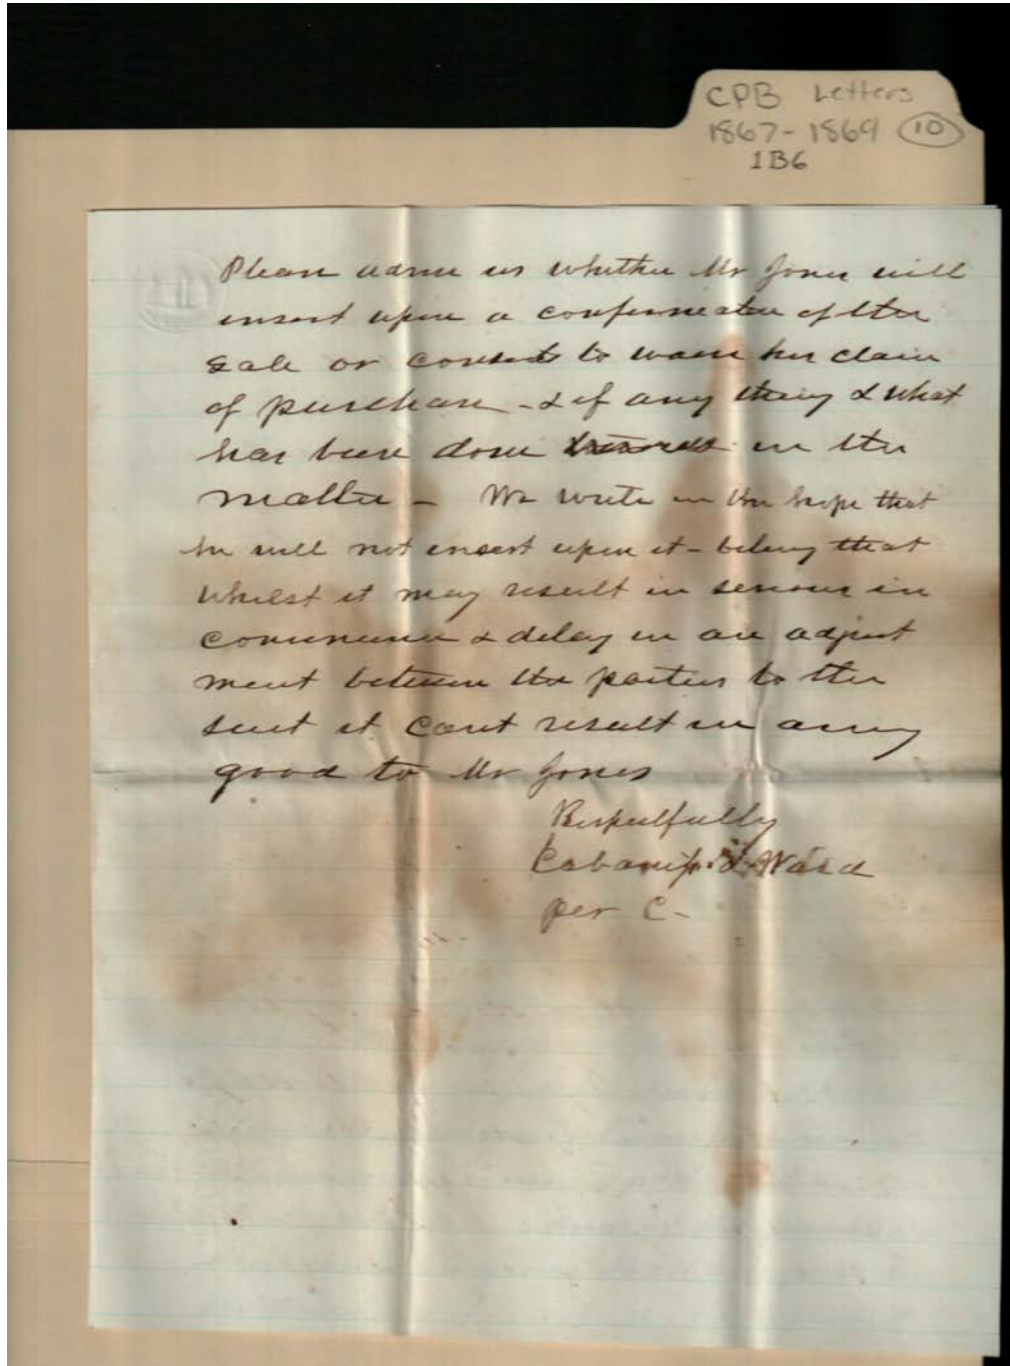 CPB Letters
1867-1869 10
1B6
Please advise us whether Mr Jones will
insist upon a confirmation of the
sale or consent to waive his claim
of purchase - & if any thing & what
has been done in the
matter - We write in the hope that
he will not insist upon it - beleiving that
whilst it may result in serious in
convenience & delay in an adjust
ment between the parties to the
suit it cant result in any
good to Mr Jones
Respectfully
Cabaniss & Ward
per C-